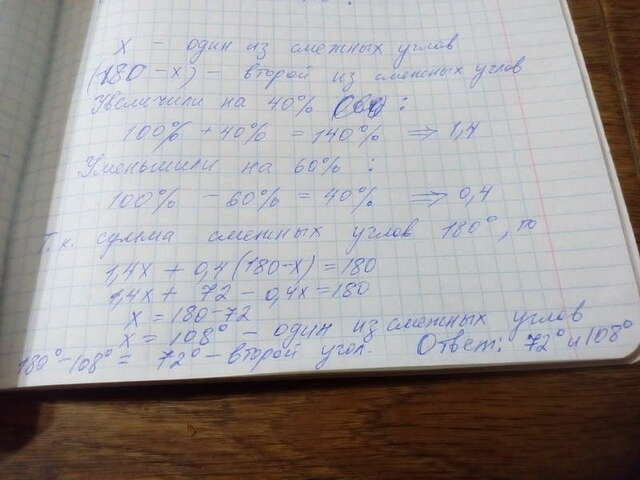 x - один из смежных углов
(180 - x) - второй из смежных углов
Увеличили на 40% :
100% + 40% = 140% ⇒ 1,4
Уменьшили на 60% :
100% - 60% = 40% ⇒ 0,4
Т.к. сумма смежных углов 180°, то
1,4x + 0,4(180-x) = 180
1,4x + 72 - 0,4x = 180
x = 180-72
x = 108° - один из смежных углов
180°-108° = 72° - второй угол. Ответ: 72° и 108°